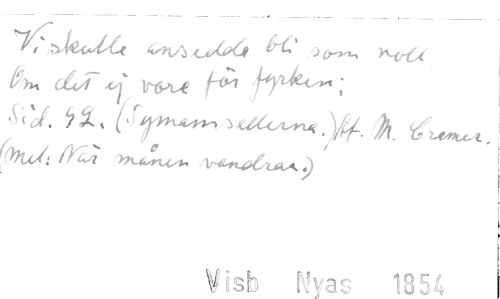 Vi skulle ansedda bli som noll
Om det ej vore för fyrken;
Sid. 92. (Symamsellerna.) Af. M. Cramer.
(Mel: När månen vandrar.)
Visb Nyas 1854